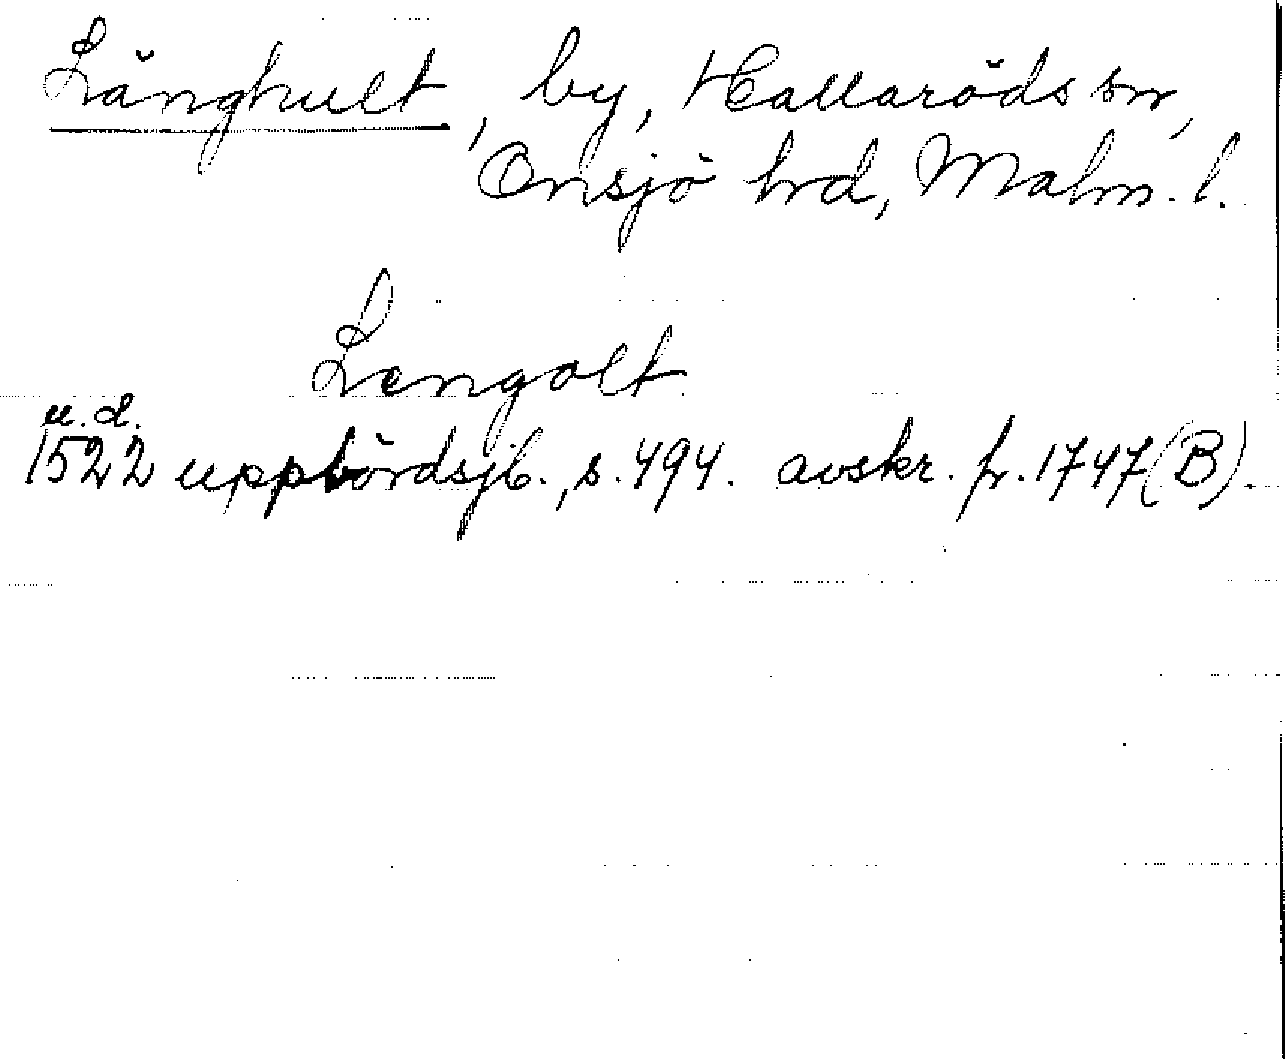 Långhult, by, Hallaröds sn,
Onsjö hrd, Malm. l.
Lengolt
u.d.
1522 uppbördsjb., s. 494. avskr. fr. 1747 (B).